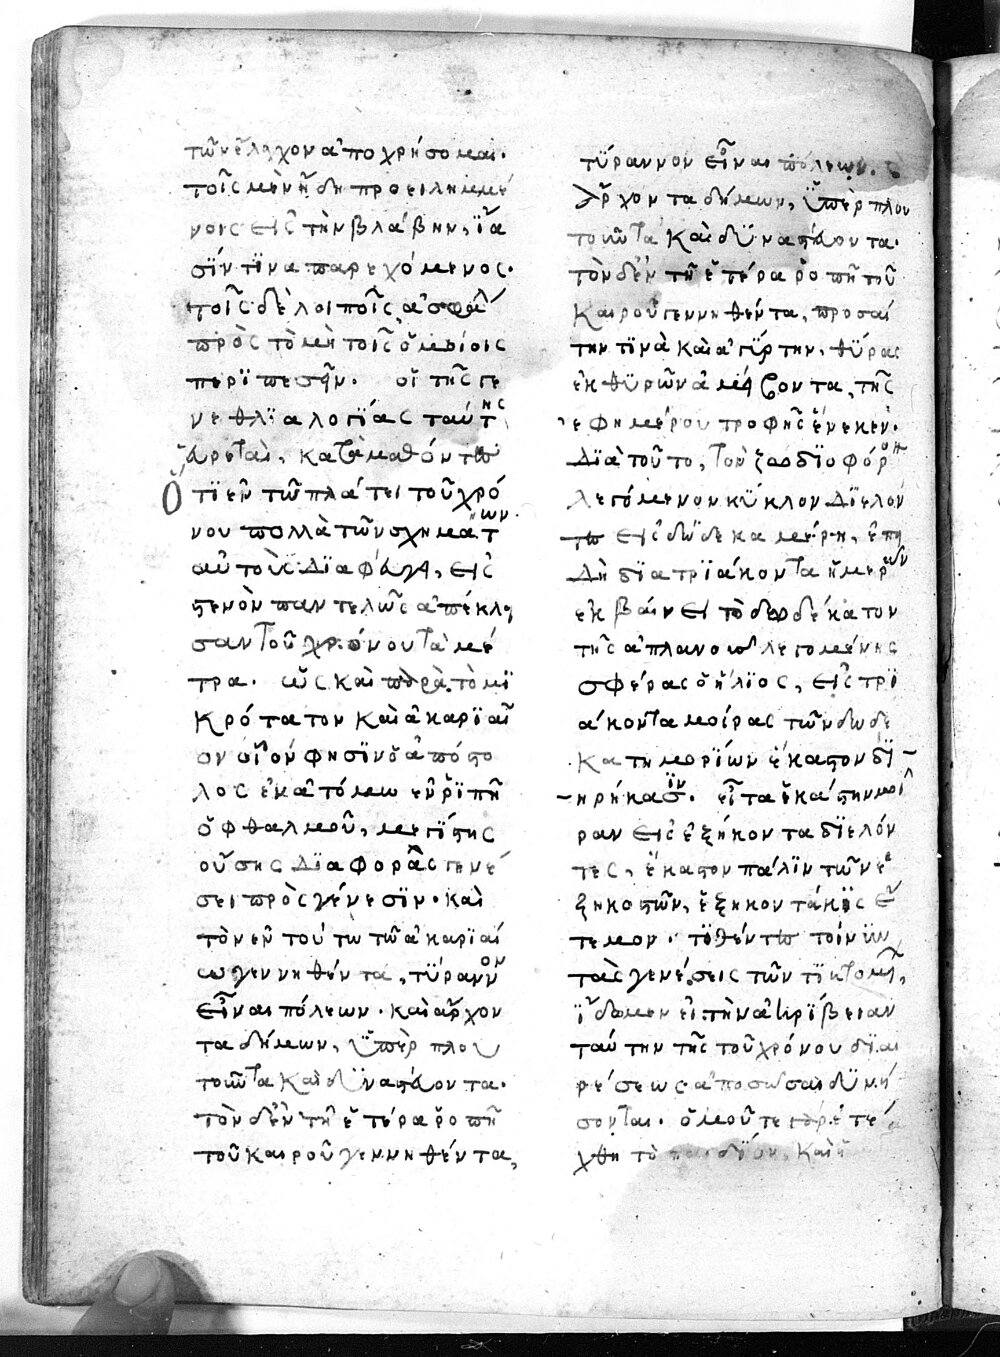 τῶν ἔλεγχον ἀποχρήσομαι·
τοῖς μὲν ἤδη προειλημμέ
νοις εἰς τὴν βλάβην, ἴα
σίν τινα παρεχόμενος·
τοῖς δὲ λοιποῖς ἀσφάλ
πρὸς τὸ μὴ τοῖς ὁμοίοις
περιπεσεῖν. οἱ τῆς γε
νεθλιαλογίας ταύτης
εὑρεταὶ, καταμαθόντες
Ὅτι ἐν τῷ πλάτει τοῦ χρό
νου πολλὰ τῶν σχημάτων
αὐτοὺς διαφεύγει, εἰς
στενὸν παντελῶς ἀπέκλει
σαν τοῦ χρόνου τὰ μέ
τρα· ὡς καὶ παρὰ τὸ μι
κρότατον καὶ ἀκαριαῖ
ον οἷόν φησιν ὁ ἀπόστο
λος ἐν ἀτόμω ἐν ῥιπῆ
ὀφθαλμοῦ, μεγίστης
οὔσης διαφορᾶς γενέ
σει πρὸς γένεσιν· καὶ
τὸν ἐν τούτω τῶ ἀκαριαί
ω γεννηθέντα, τύραννον
εἶναι πόλεων· καὶ ἄρχον
τα δήμων, ὑπὲρ πλου
τοῦντα καὶ δυναστεύοντα·
τὸν δὲ ἐν τῆ ἑτέρα ῥοπῆ
τοῦ καιροῦ γεννηθέντα,
τύραννον εἶναι πόλεων. κ
ἄρχοντα δήμων, ὑπὲρ πλου
τοῦντα καὶ δυναστεύοντα·
τὸν δὲ ἐν τῆ ἑτέρα ῥοπῆ τοῦ
καιροῦ γεννηθέντα, προσαί
την τινὰ καὶ ἀγύρτην, θύρας
ἐκ θυρῶν ἀμείβοντα, τῆς
ἐφημέρου τροφῆς ἕνεκεν·
Διὰ τοῦτο, τὸν ζωδιοφόρον
λεγόμενον κύκλον διελόν
τες εἰς δώδεκα μέρη, ἐπει
δὴ διὰ τριάκοντα ἡμερῶν
ἐκβαίνει τὸ δωδέκατον
τῆς ἀπλανοῦς λεγομένης
σφέρας ὁ ἥλιος, εἰς τρι
άκοντα μοίρας τῶν δωδε
κατημορίων ἕκαστον δι
ηρήκασιν· εἶτα ἑκάστην μοῖ
ραν εἰς ἑξήκοντα διελόν
τες, ἕκαστον πάλιν τῶν ἑ
ξηκοστῶν, ἑξηκοντάκις ἔ
τεμον· τιθέντες τοίνυν
τὰς γενέσεις τῶν τικτομέν,
ἴδωμεν εἰ τὴν ἀκρίβειαν
ταύτην τῆς τοῦ χρόνου διαι
ρέσεως ἀποσῶσαι δυνή
σονται. ὁμοῦ τε γὰρ ἐτέ
χθη τὸ παιδίον, καὶ ἡ